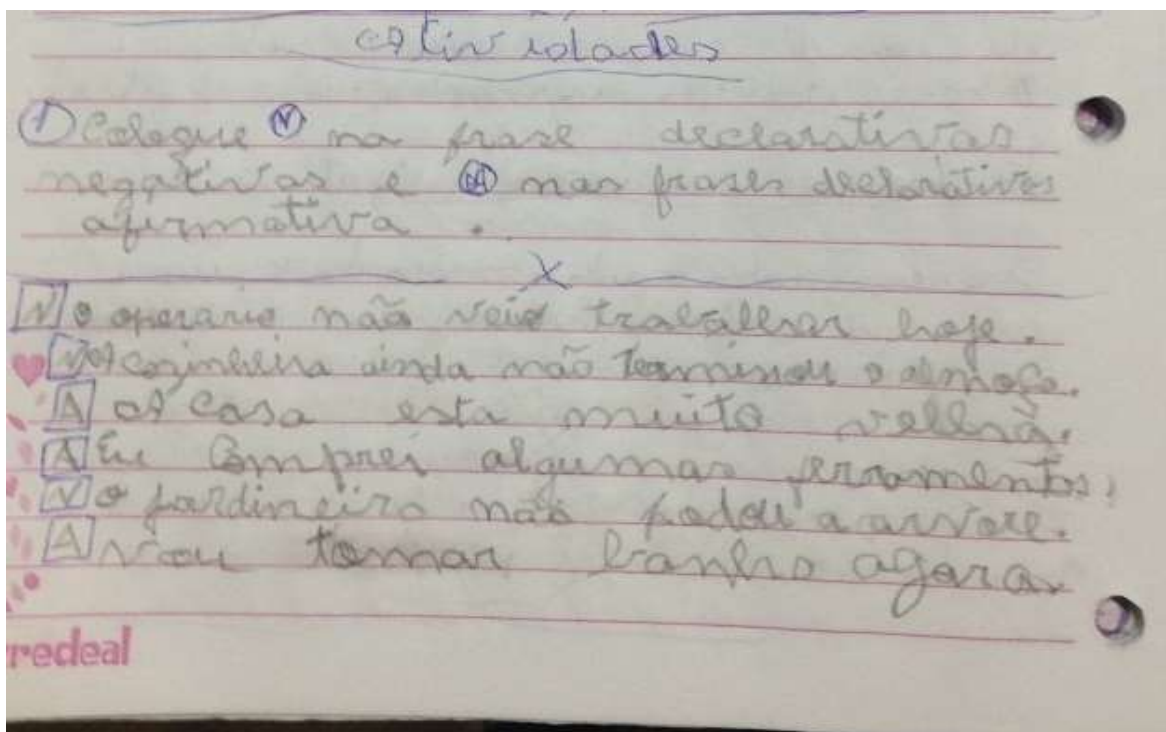 Atividades
① Coloque Ⓝ na frase declarativas
negativas e Ⓐ nas frases declarativas
afirmativa .
X
N o operario não veio trabalhar hoje .
N A cozinheira ainda não terminou o almoço.
A A casa esta muito velha.
A Eu comprei algumas ferramentas,
N o jardineiro não podou a arvore.
A vou tomar banho agora
redeal